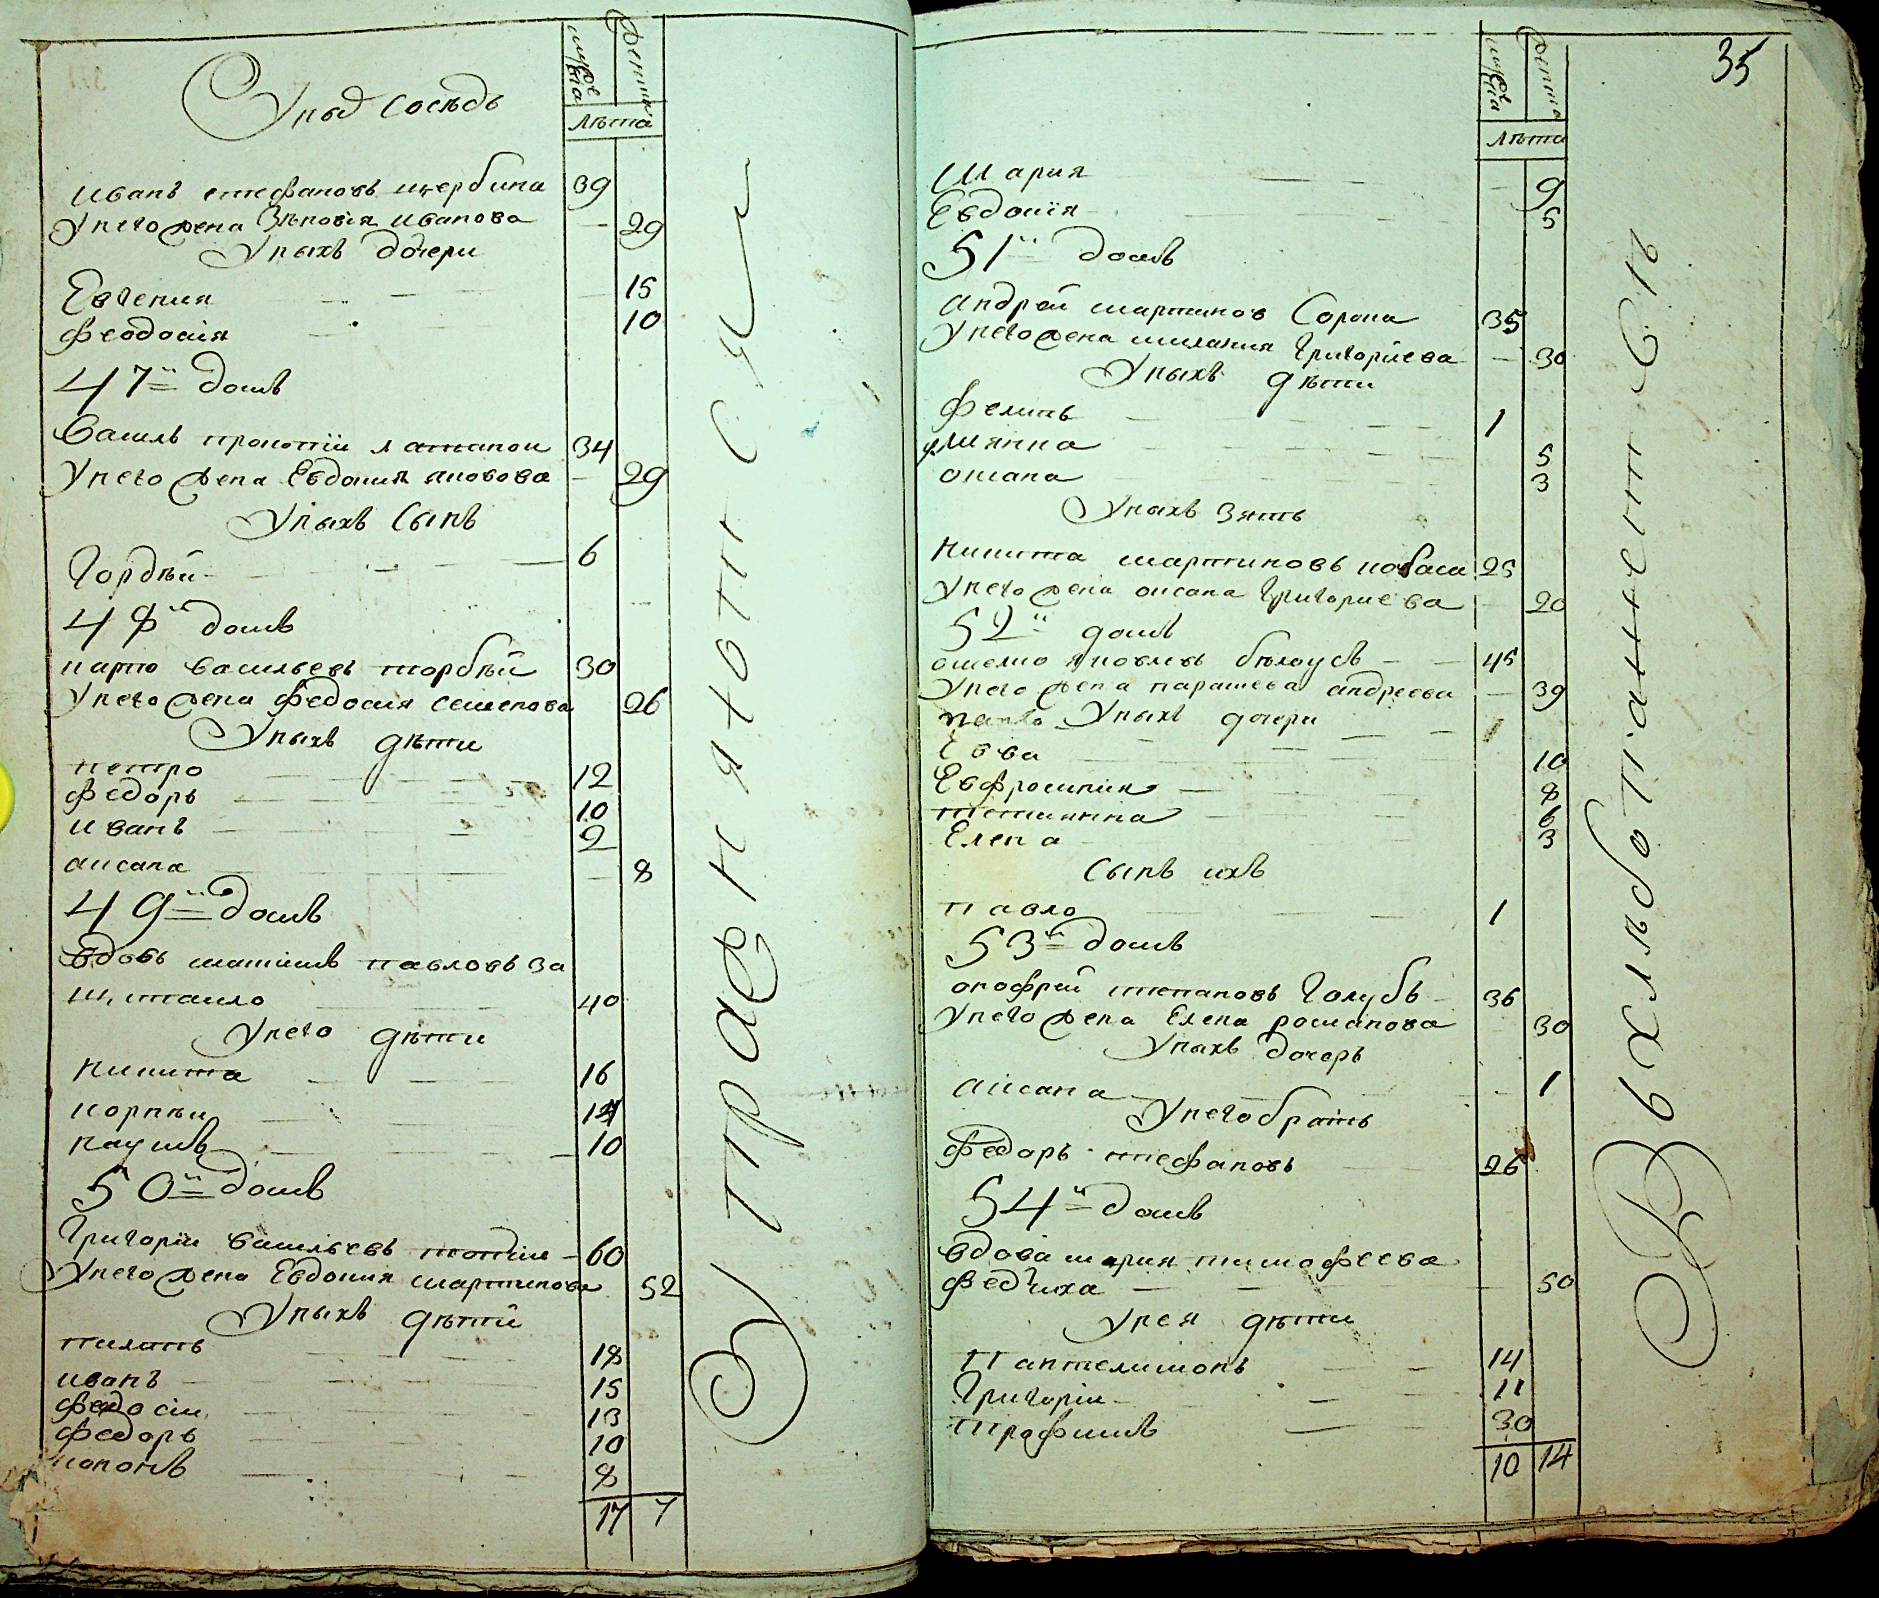 мужеска
женска
лѣта
У него сосѣдъ
иванъ стефановъ щербина 39
У него жена Зѣновія иванова — 29
У нихъ дочери
Евгения 15
Феодосія 10
47й домъ
Василь прокопіи 34
У него жена Евдокия яковова — 29
У нихъ Сынъ
Гордѣй 6
48й домъ
карпо васильевъ торбѣй 30
У него жена федосия семенова 26
У нихъ дѣти
петро 12
федоръ 10
иванъ 2
аксана 8
49й домъ
вдовъ максимъ павловъ за
40
У него дѣти
Никита 16
корнѣи 14
наумъ 10
50й домъ
Григоріи васильевъ 60
У него жена Евдокия мартинова 52
У нихъ дѣти
пилипъ 18
иванъ 15
федосіи 13
федоръ 10
кононъ 8
17 7
Упражняются
35
мужеска
женска
лѣта
Мария 9
Евдокія 5
51й домъ
андрей мартинов Сорока 35
У него жена милания Григоріева — 30
У нихъ дѣти
филипъ 1
улиянна 5
оксана 3
У нихъ зять
Никита мартиновъ кобаса 25
У него жена оксана Григориева 20
52й домъ
омелко яковлевъ бѣлоусъ 45
У него жена парашева андреева — 39
павло У нихъ дочери 1
Евва 10
Евфросиния 8
тетиянна 6
Елена 3
Сынъ ихъ
павло 1
53й домъ
онофрей степановъ Голубъ 36
У него жена Елена романова 30
У нихъ дочеръ
аксана 1
У него братъ
федоръ стефановъ 26
54й домъ
вдова мария тимофеева
федчиха — 50
У нея дѣти
Пантелимонъ 14
Григоріи 11
трофимъ 30
10 14
В хлѣбопашествѣ